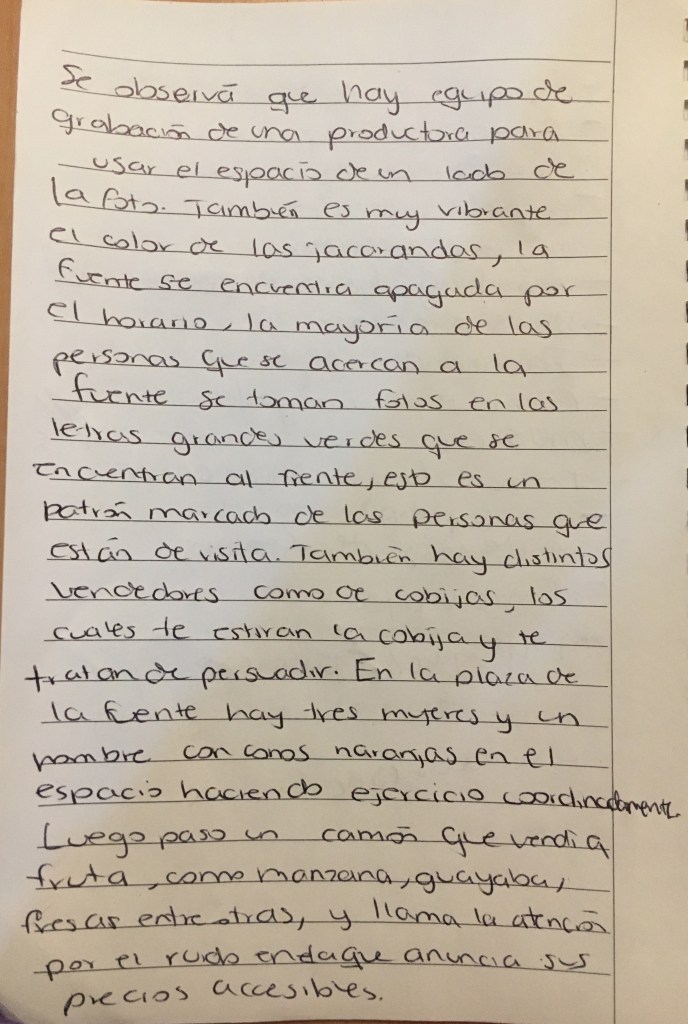 Se observá que hay equipo de
grabación de una productora para
usar el espacio de un lado de
la foto. También es muy vibrante
el color de las jacarandas, la
fuente se encuentra apagada por
el horario, la mayoría de las
personas que se acercan a la
fuente se toman fotos en las
letras grandes verdes que se
encuentran al frente, esto es un
patrón marcado de las personas que
están de visita. También hay distintos
vendedores como de cobijas, los
cuales te estiran la cobija y te
tratan de persuadir. En la plaza de
la fuente hay tres mujeres y un
hombre con conos naranjas en el
espacio haciendo ejercicio coordinadamente.
Luego paso un camón que vendia
fruta, como manzana, guayaba,
fresas entre otras, y llama la atención
por el ruido en que anuncia sus
precios accesibles.